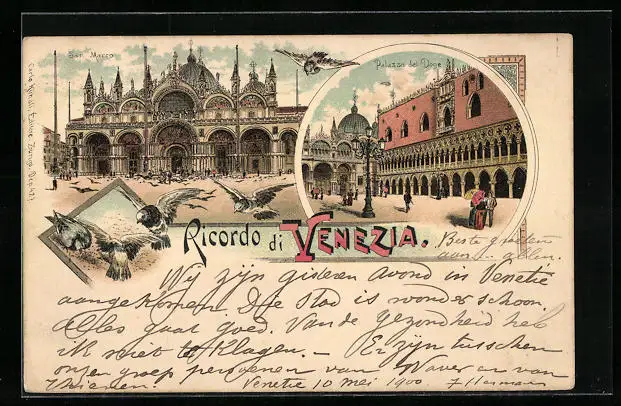 San Marco
Palazzo dei Doge
Ricordo di VENEZIA.
Beste groeten
aan allen.
Wij zijn gisteren avond in Venetië
aangekomen. Die stad is wonder schoon.
Alles gaat goed. Van de gezondheid heb
ik niet te klagen. — Er zijn tusschen
onzen groep personen van Waver en van
Thienen. Venetie 10 mei 1900